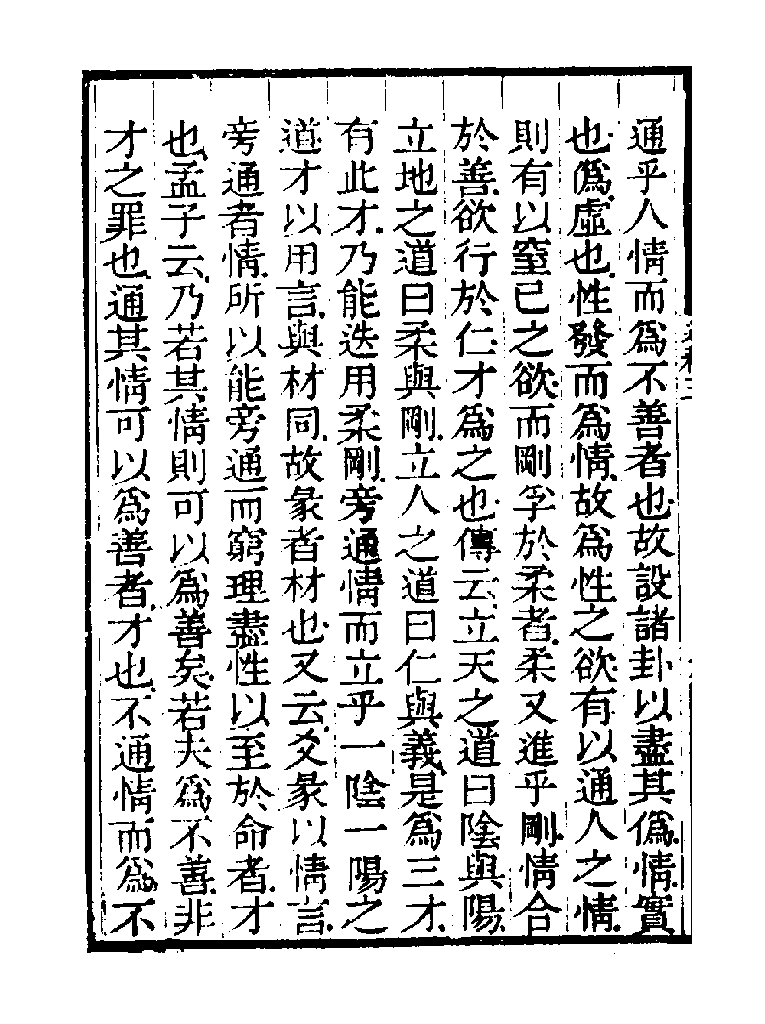 通乎人情而爲不善者也故設諸卦以盡其僞情實
也僞虛也性發而爲情故爲性之欲有以通人之情
則有以窒已之欲而剛孚於柔者柔又進乎剛情合
於善欲行於仁才爲之也傳云立天之道曰陰與陽
立地之道曰柔與剛立人之道曰仁與義是爲三才
有此才乃能迭用柔剛旁通情而立乎一陰一陽之
道才以用言與材同故彖者材也又云爻彖以情言
旁通者情所以能旁通而窮理盡性以至於命者才
也孟子云乃若其情則可以爲善矣若夫爲不善非
才之罪也通其情可以爲善者才也不通情而爲不